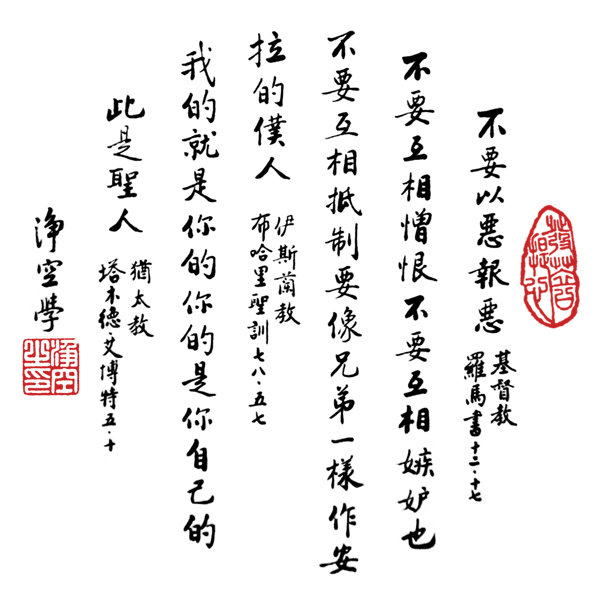 發菩
提心
不要以惡報惡
基督教
羅馬書十二·十七
不要互相憎恨不要互相嫉妒也
不要互相抵制要像兄弟一樣作安
拉的僕人
伊斯蘭教
布哈里聖訓七八·五七
我的就是你的你的是你自己的
此是聖人
猶太教
塔木德·艾博特五·十
淨空學
淨空
之印